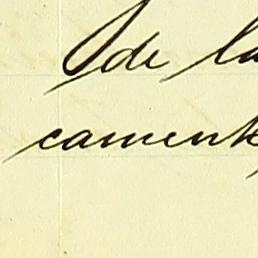 de la
camente